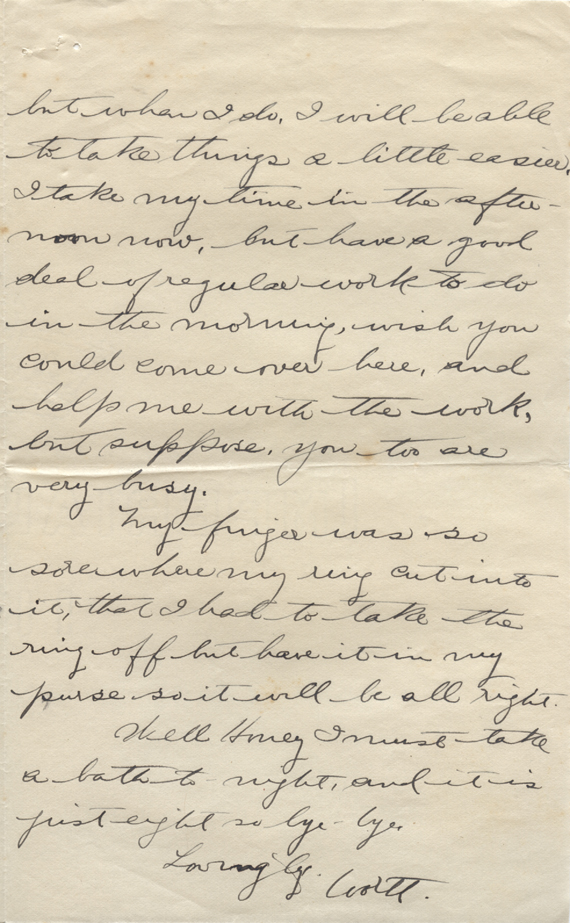 but when I do, I will be able
to take things a little easier.
I take my time in the after-
noon now, but have a good
deal of regular work to do
in the morning, wish you
could come over here, and
help me with the work,
but suppose, you too are
very busy.
My finger was so
sore where my ring cut into
it, that I had to take the
ring off but have it in my
purse so it will be all right.
Well Honey I must take
a bath to-night, and it is
just eight so bye-bye.
Lovingly.